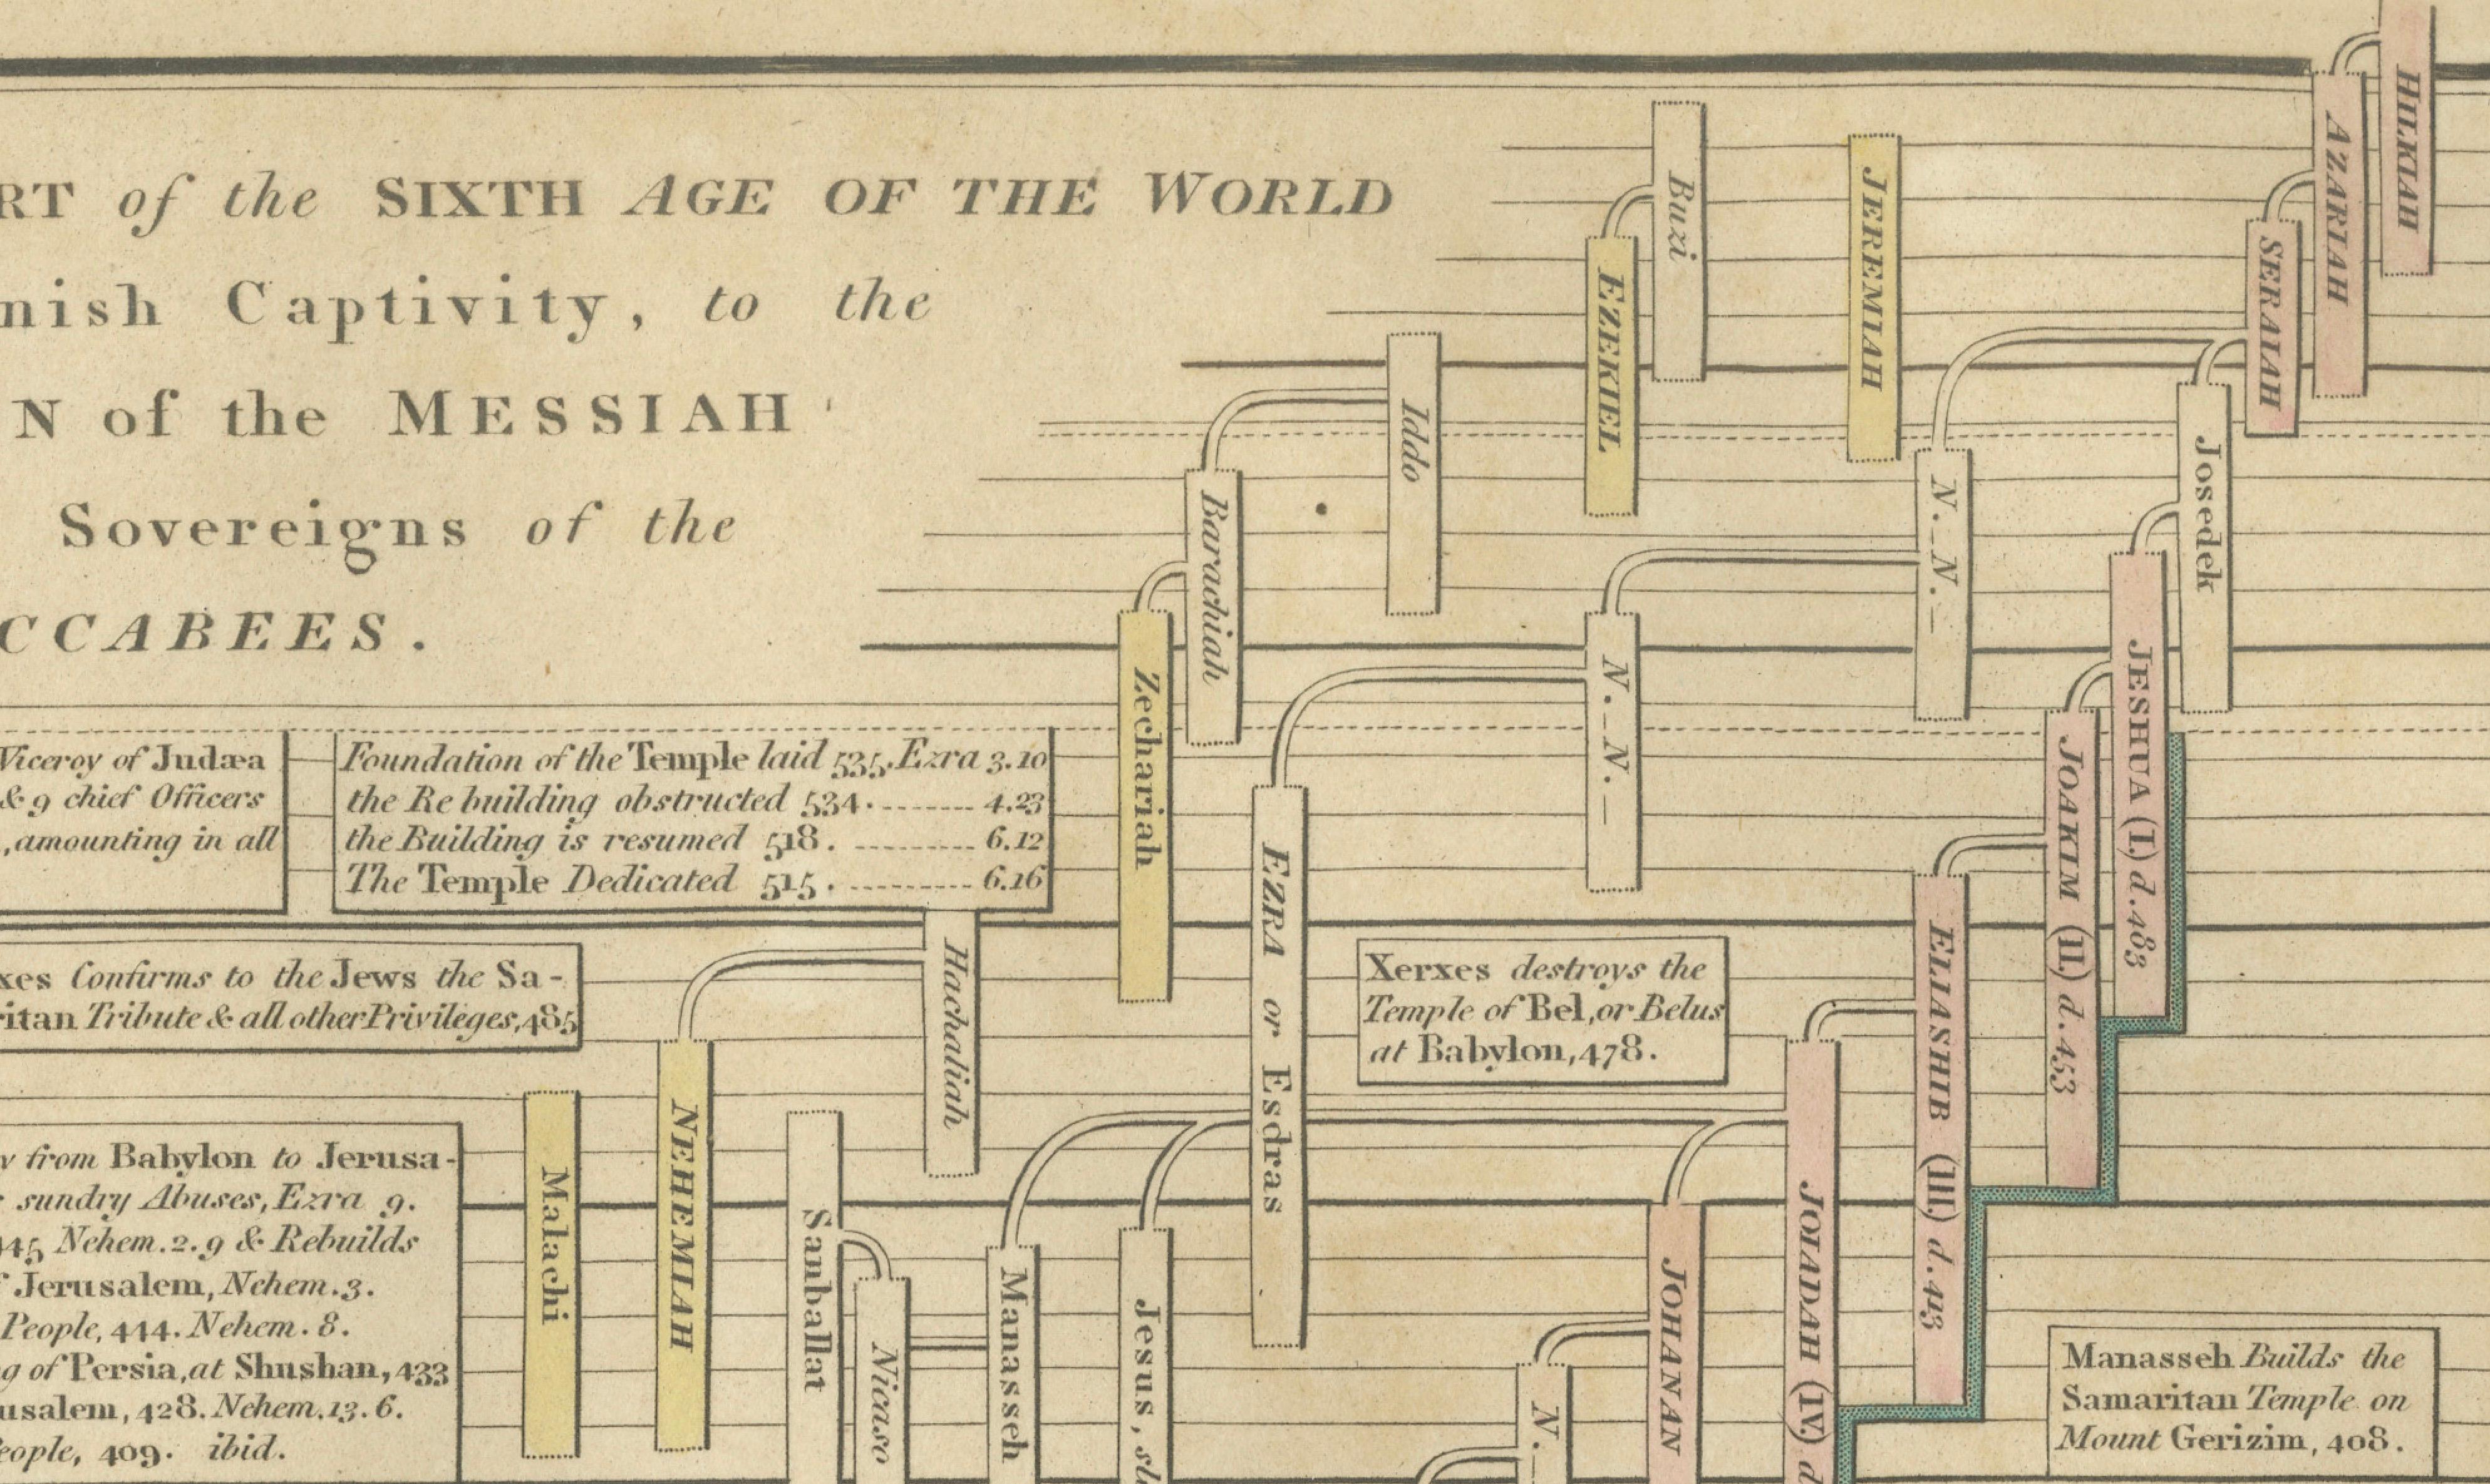 RT of the SIXTH AGE OF THE WORLD
nish Captivity, to the
N of the MESSIAH
Sovereigns of the
CCABEES.
HILKIAH
AZARIAH
SERAIAH
Buzi
EZEKIEL
JEREMIAH
Iddo
Barachiah
Zechariah
N._N._
N._N._
Josedek
JESHUA (I.) d.483
JOAKIM (II.) d.453
ELIASHIB (III.) d.413
JOIADAH (IV.) d
JOHANAN
N._
EZRA or Esdras
Viceroy of Judæa
& 9 chief Officers
, amounting in all
Foundation of the Temple laid 535. Ezra 3.10
the Re building obstructed 534. -------- 4.23
the Building is resumed 518. --------- 6.12
The Temple Dedicated 515. ---------- 6.16
xes Confirms to the Jews the Sa-
ritan Tribute & all other Privileges, 485
Hachaliah
NEHEMIAH
Malachi
Xerxes destroys the
Temple of Bel, or Belus
at Babylon, 478.
from Babylon to Jerusa-
sundry Abuses, Ezra 9.
445 Nehem. 2.9 & Rebuilds
Jerusalem, Nehem. 3.
People, 444. Nehem. 8.
g of Persia, at Shushan, 433
usalem, 428. Nehem. 13. 6.
eople, 409. ibid.
Sanballat
Nicaso
Manasseh
Jesus, sl
Manasseh Builds the
Samaritan Temple on
Mount Gerizim, 408.